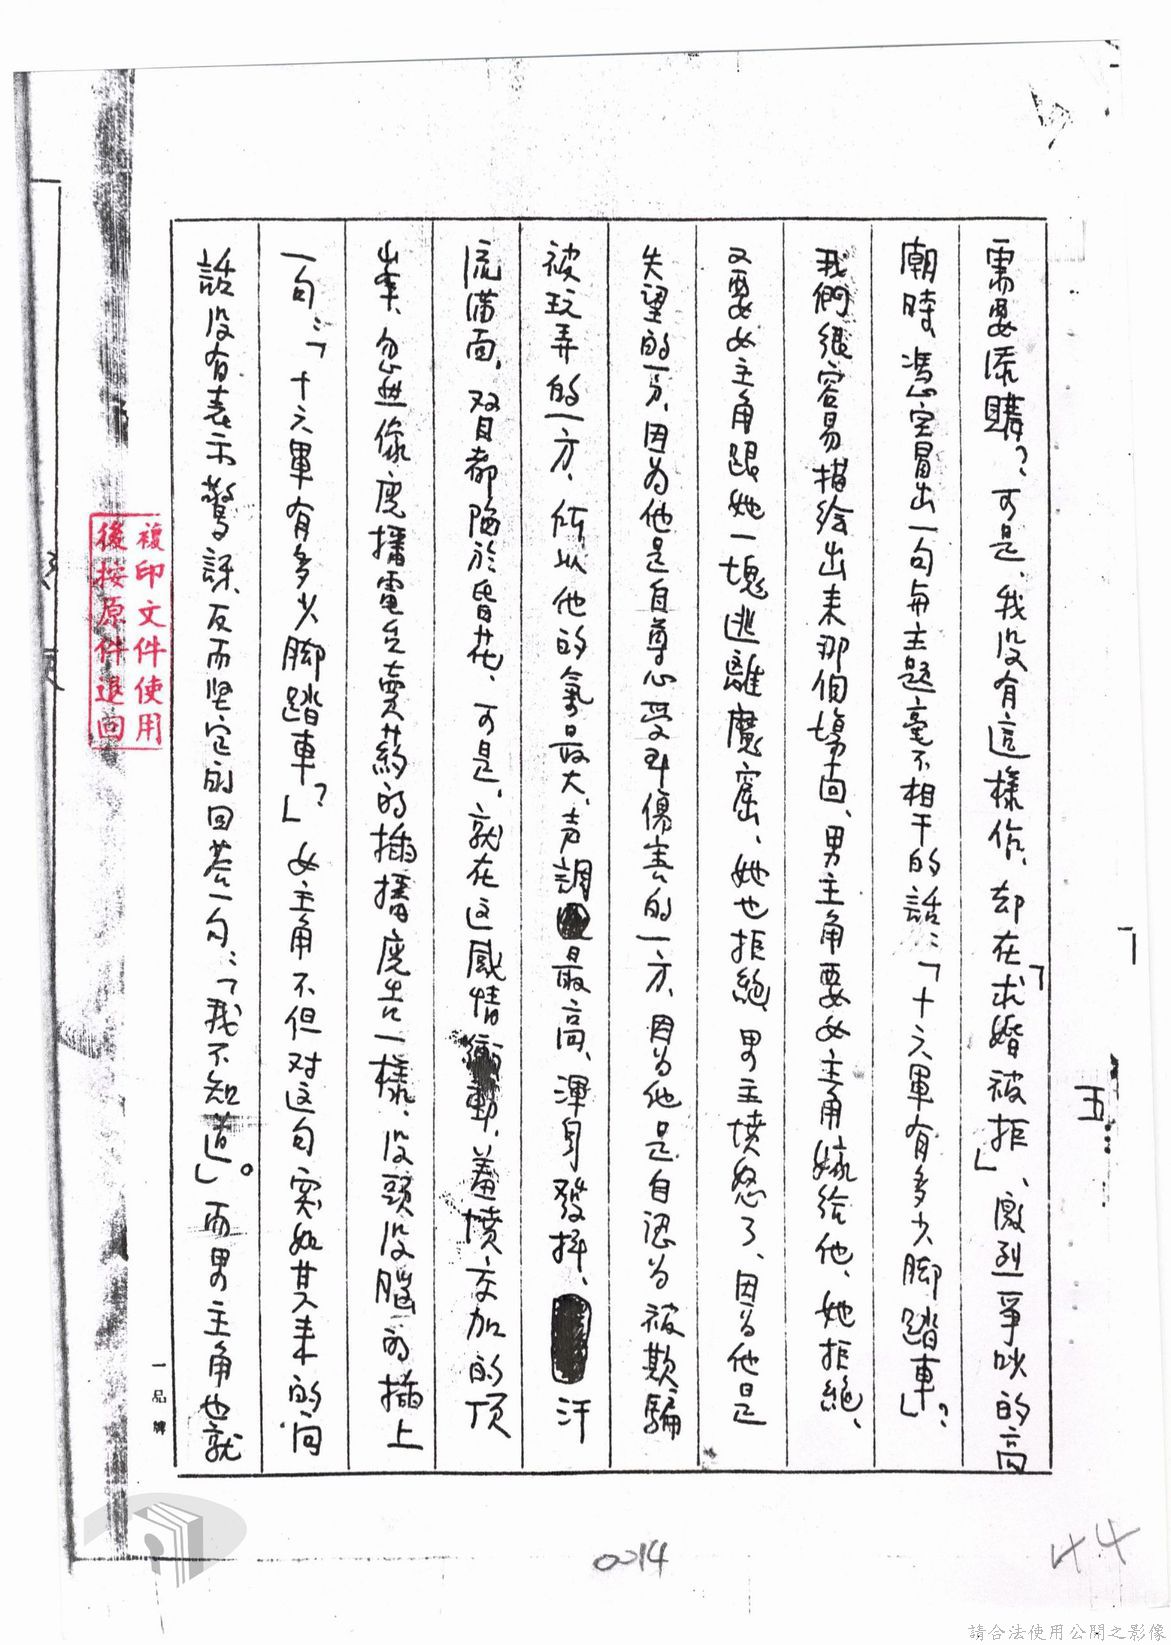 五
需要添購?可是、我没有這樣作、却在「求婚被拒」、激烈爭吵的高
潮時、憑空冒出一句与主題毫不相干的話：「十六軍有多少脚踏車」?
我們很容易描绘出来那個場面、男主角要女主角嫁给他、她拒絕、
又要女主角跟她一塊逃離魔窟、她也拒絕、男主憤怒了、因为他是
失望的一方、因为他是自尊心受到傷害的一方、因为他是自认为被欺騙
被玩弄的一方、所以他的氣最大、声調最高、渾身發抖、汗
流满面、双目都陷於昏花、可是、就在这感情衝動、羞憤交加的頂
峯、忽然像廣播電台賣药的插播廣告一樣、没頭没腦的插上
一句：「十六軍有多少脚踏車?」女主角不但对这句突如其来的问
話没有表示驚訝、反而坚定的回答一句：「我不知道」。而男主角也就
一品牌
複印文件使用
後按原件退回
0014
44
請合法使用公開之影像